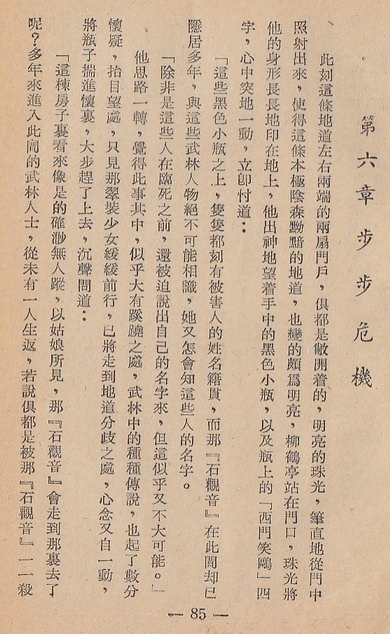 第六章 步步危機
此刻這條地道左右兩端的兩扇門戶，俱都是敞開着的，明亮的珠光，筆直地從門中
照射出來，使得這條本極陰森黝黯的地道，也變的頗爲明亮，柳鶴亭站在門口，珠光將
他的身形長長地印在地上，他出神地望着手中的黑色小瓶，以及瓶上的「西門笑鷗」四
字，心中突地一動，立卽忖道：
「這些黑色小瓶之上，隻隻都刻有被害人的姓名籍貫，而那『石觀音』在此間却已
隱居多年，與這些武林人物絕不可能相識，她又怎會知道這些人的名字。
「除非是這些人在臨死之前，還被迫說出自己的名字來，但這似乎又不大可能。」
他思路一轉，覺得此事其中，似乎大有蹊蹺之處，武林中的種種傳說，也起了數分
懷疑，抬目望處，只見那翠裝少女緩緩前行，已將走到地道分歧之處，心念又自一動，
將瓶子揣進懷裏，大步趕了上去，沉聲問道：
「這棟房子裏看來像是的確渺無人蹤，以姑娘所見，那『石觀音』會走到那裏去了
呢？多年來進入此間的武林人士，從未有一人生返，若說俱都是被那『石觀音』一一殺
— 85 —